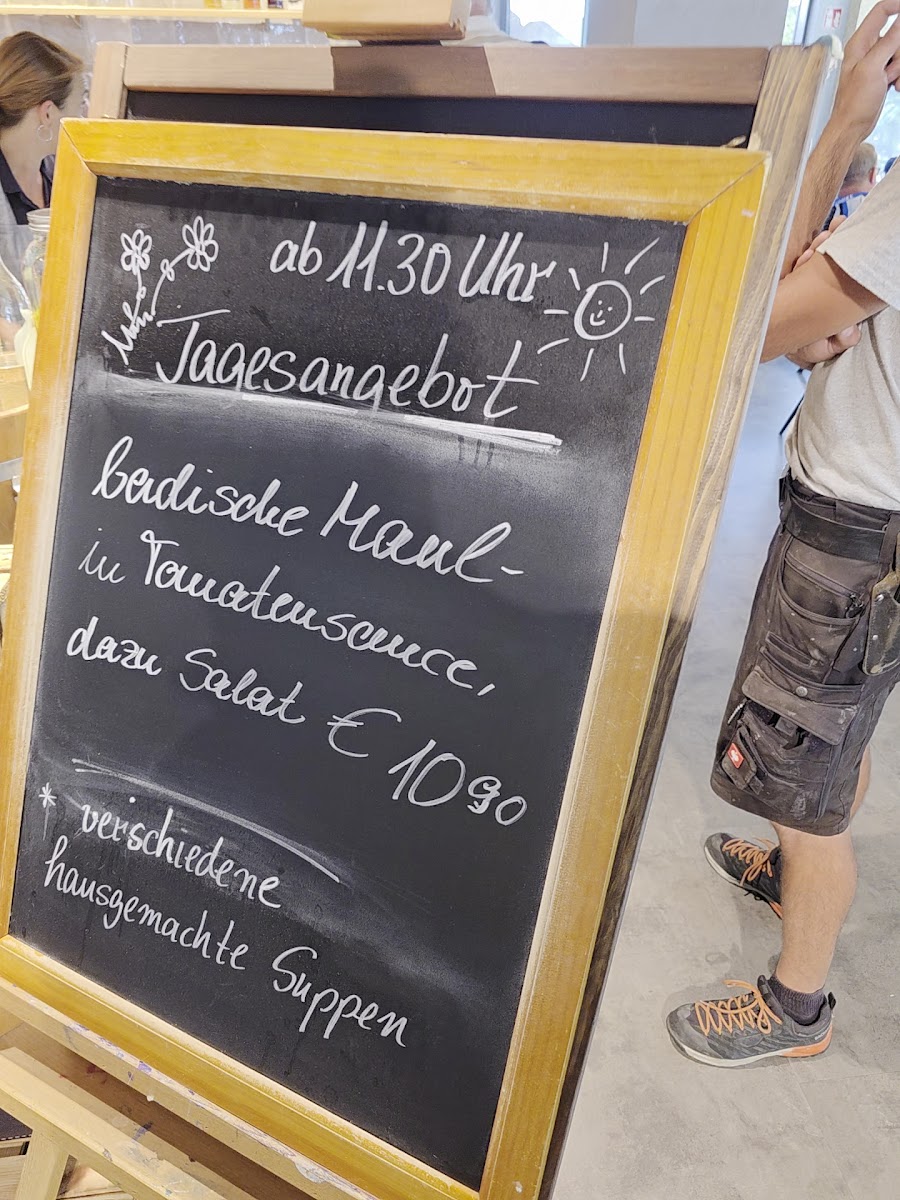 ab 11.30 Uhr
Tagesangebot
badische Maul-
in Tomatensauce,
dazu Salat € 10 90
* verschiedene
hausgemachte Suppen